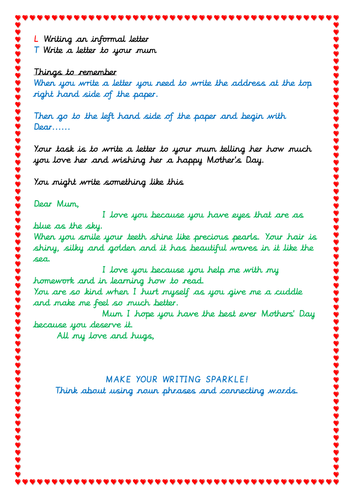 L Writing an informal letter
T Write a letter to your mum
Things to remember
When you write a letter you need to write the address at the top
right hand side of the paper.
Then go to the left hand side of the paper and begin with
Dear......
Your task is to write a letter to your mum telling her how much
you love her and wishing her a happy Mother's Day.
You might write something like this
Dear Mum,
I love you because you have eyes that are as
blue as the sky.
When you smile your teeth shine like precious pearls. Your hair is
shiny, silky and golden and it has beautiful waves in it like the
sea.
I love you because you help me with my
homework and in learning how to read.
You are so kind when I hurt myself as you give me a cuddle
and make me feel so much better.
Mum I hope you have the best ever Mothers' Day
because you deserve it.
All my love and hugs,
MAKE YOUR WRITING SPARKLE!
Think about using noun phrases and connecting words.